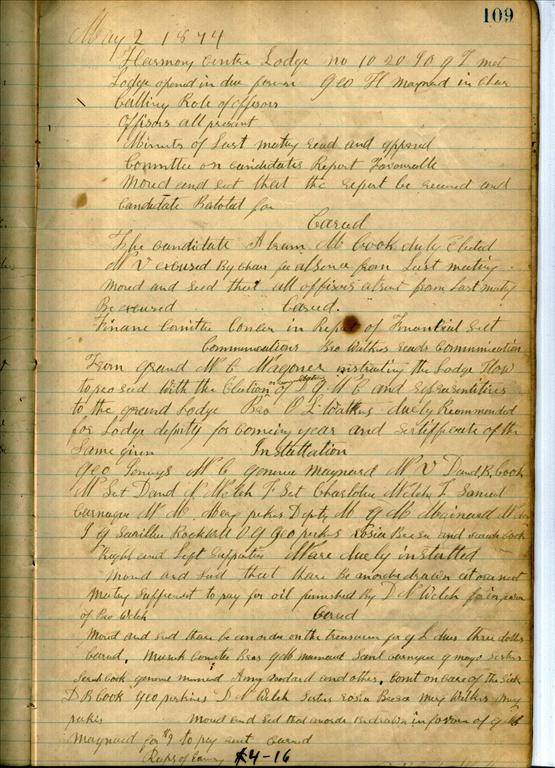 109
May 2 1874
Harmony Centre Lodge no 1020 I O g T met
Lodge opened in due form Geo H Maynard in Chair
Calling Role of officers
Officers all present
Minuts of Last meting read and approvd
Committee on candidates Report Favourable
Moved and sect that the report be received and
Candidate Balotat for
Carued
The candidate Abram M Cook duly Elected
W V excused By Chair for absence from Last meting
Moved and secd that all officers absent from Last meting
Be excused Carued.
Finance Comittee Concur in Report of Financial Sect
Communications Bro Walker reads Communication
From grand W C Wagoner instructing the Lodge How
to proseed with the Election of and representitives
to the grand Lodge Bro O L Watkins duely Recommended
for Lodge deputy for coming year and sertifficate of the
Same given Instattation
Geo W C gemmie Maynard W V David B Cook
W Sect David N Welch F Sect Charlotte Welch T Samuel
Carnagie W M Mary perkes Depty M g H Mainard
I g Rockwell O g Geo perkes Rosia and Sarah Cook
Right and Left Supporters Ware duely instatted
Moved and secd that there Be drawn at our next
Meting suffisent to pay for oil furnished By D N Welch
of Bro Welch Carued
Moved and secd thare be an order on the treasurer for g L dues three dollars
Carued. Comitte Bros g H Mainard Saml Carnagie g mayo sisters
Sarah Cook gemmie mainard Amy Woodard and others. Comt on care of the Sick
D B Cook geo perkins D N Welch Sisters Rosia Mary Walker Mary
perkes Moved and Secd that an order be drawn in favor of g H
Maynard for $9 to pay rent carued
Recpts of Evning $4-16